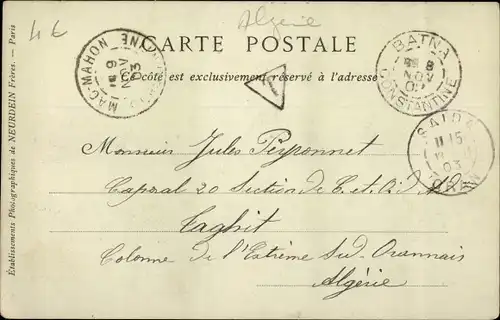 4 €
Algérie
CARTE POSTALE
Ce côté est exclusivement réservé à l'adresse
MAC-MAHON
9
NOV
03
BATNA
8
NOV
CONSTANTINE
SAIDA
15
03
ORAN
Monsieur Jules Peyponnet
Caporal 20 Section de C. et. O. d. Ad
Taghit
Colonne de l'Extrême Sud-Oranais
Algérie
Établissements Photographiques de NEURDEIN Frères. — Paris